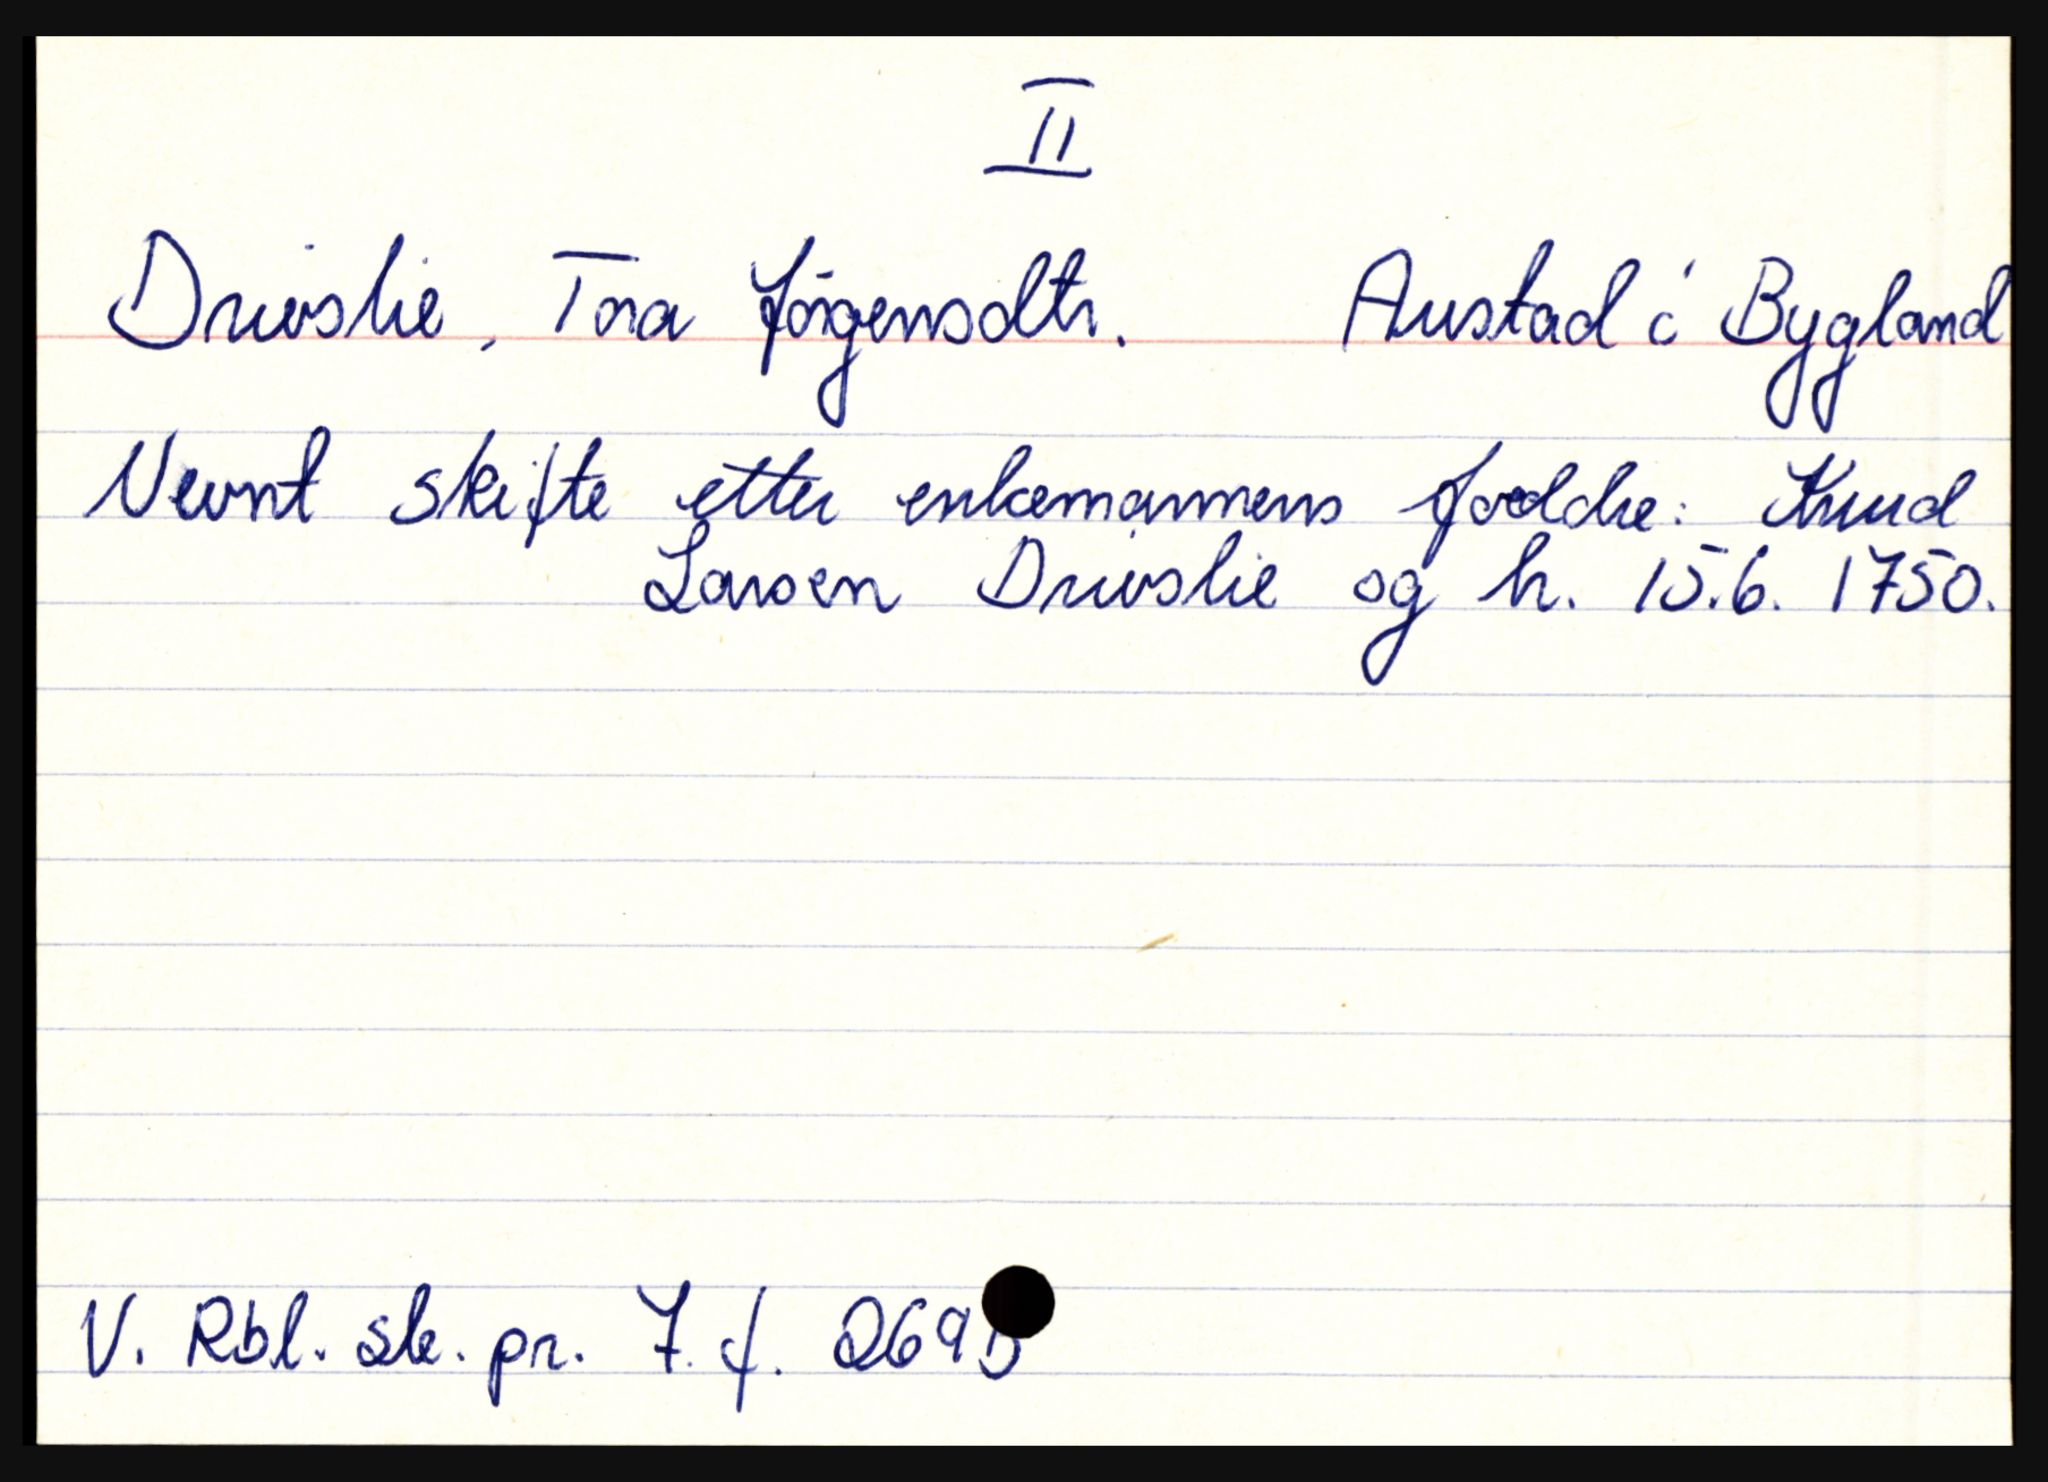 II
Drivslie, Tora Jörgensdtr. Austad i Bygland
Nevnt skifte etter enkemannens foreldre: Knud
Larsen Drivslie og h. 15.6. 1750.
V. Rbl. sk. pr. 7. f. 269b